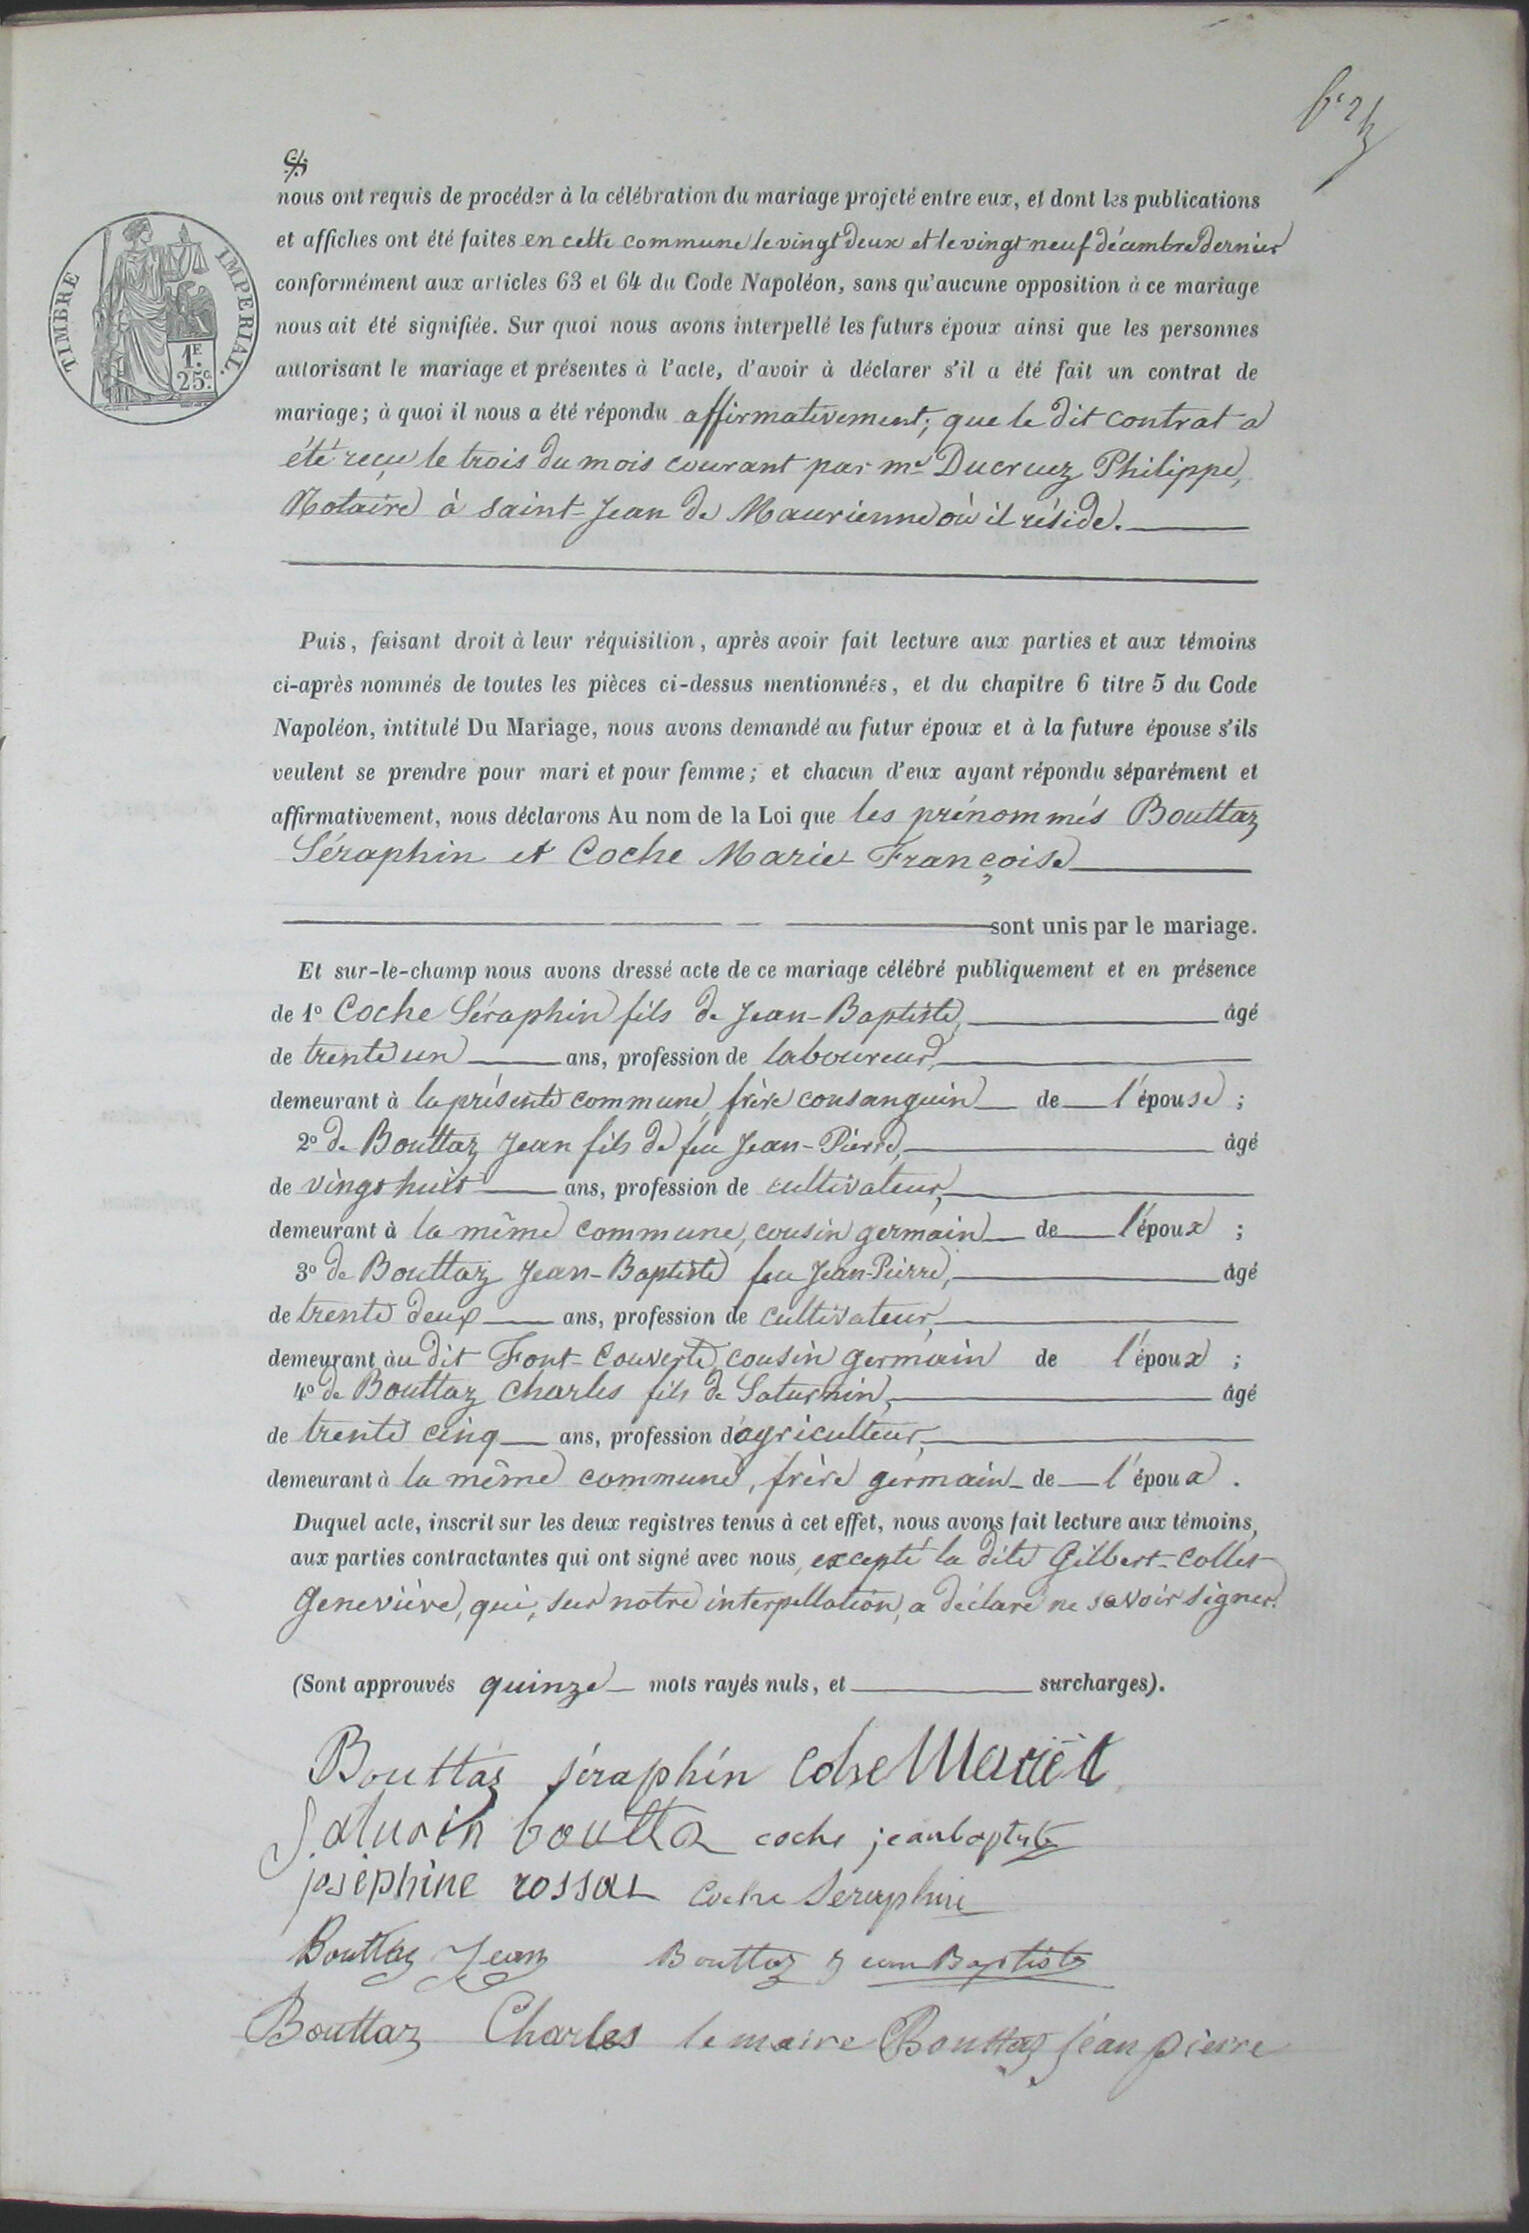 nous ont requis de procéder à la célébration du mariage projeté entre eux, et dont les publications
et affiches ont été faites en cette commune le vingt deux et le vingt neuf décembre dernier
conformément aux articles 63 et 64 du Code Napoléon, sans qu'aucune opposition à ce mariage
nous ait été signifiée. Sur quoi nous avons interpellé les futurs époux ainsi que les personnes
autorisant le mariage et présentes à l'acte, d'avoir à déclarer s'il a été fait un contrat de
mariage; à quoi il nous a été répondu affirmativement; que le dit contrat a
été reçu le trois du mois courant par me Ducruez Philippe,
Notaire à Saint-Jean de Maurienne où il réside.
TIMBRE IMPERIAL.
1F.
25c.
Puis, faisant droit à leur réquisition, après avoir fait lecture aux parties et aux témoins
ci-après nommés de toutes les pièces ci-dessus mentionnées, et du chapitre 6 titre 5 du Code
Napoléon, intitulé Du Mariage, nous avons demandé au futur époux et à la future épouse s'ils
veulent se prendre pour mari et pour femme; et chacun d'eux ayant répondu séparément et
affirmativement, nous déclarons Au nom de la Loi que les prénommés Bouttaz
Séraphin et Coche Marie Françoise
sont unis par le mariage.
Et sur-le-champ nous avons dressé acte de ce mariage célébré publiquement et en présence
de 1o Coche Séraphin fils de Jean-Baptiste, âgé
de trente un ans, profession de laboureur,
demeurant à la présente commune, frère consanguin de l'épouse ;
2o de Bouttaz Jean fils de feu Jean-Pierre, âgé
de vingt huit ans, profession de cultivateur,
demeurant à la même commune, cousin germain de l'époux ;
3o de Bouttaz Jean-Baptiste feu Jean-Pierre, âgé
de trente deux ans, profession de cultivateur,
demeurant au dit Font-Couverte, cousin germain de l'époux ;
4o de Bouttaz Charles fils de Saturnin, âgé
de trente cinq ans, profession d'agriculteur,
demeurant à la même commune, frère germain de l'époux .
Duquel acte, inscrit sur les deux registres tenus à cet effet, nous avons fait lecture aux témoins,
aux parties contractantes qui ont signé avec nous, excepté la dite Gilbert-Collet
Geneviève, qui, sur notre interpellation, a déclaré ne savoir signer.
(Sont approuvés quinze mots rayés nuls, et surcharges).
Bouttaz séraphin
coche jeanbaptiste
joséphine rossat Coche Séraphin
Bouttaz Jean Bouttaz Jean Baptiste
Bouttaz Charles le maire Bouttaz jean pierre